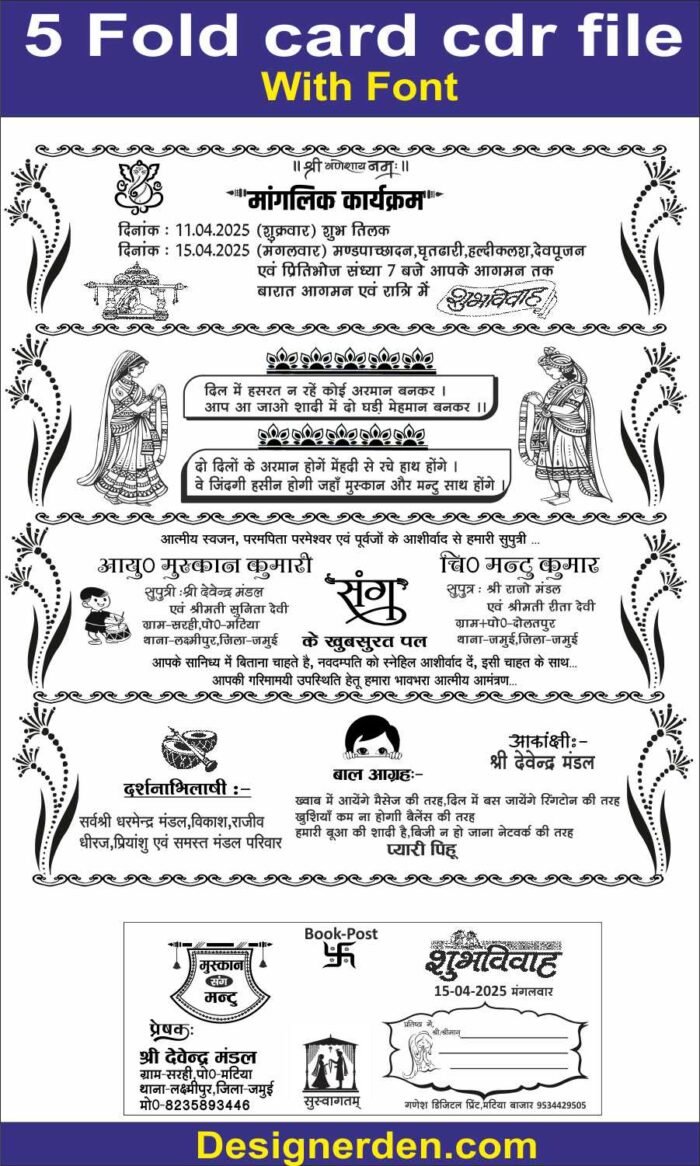 5 Fold card cdr file
With Font
॥ श्री गणेशाय नमः ॥
मांगलिक कार्यक्रम
दिनांक : 11.04.2025 (शुक्रवार) शुभ तिलक
दिनांक : 15.04.2025 (मंगलवार) मण्डपाच्छादन,घृतढारी,हल्दीकलश,देवपूजन
एवं प्रितिभोज संध्या 7 बजे आपके आगमन तक
बारात आगमन एवं रात्रि में शुभविवाह
दिल में हसरत न रहें कोई अरमान बनकर ।
आप आ जाओ शादी में दो घडी मेहमान बनकर ।।
दो दिलों के अरमान होगें मेंहदी से रचे हाथ होंगे ।
वे जिंदगी हसीन होगी जहाँ मुस्कान और मन्टु साथ होंगे ।
आत्मीय स्वजन, परमपिता परमेश्वर एवं पूर्वजों के आशीर्वाद से हमारी सुपुत्री ...
आयु0 मुस्कान कुमारी
सुपुत्री :श्री देवेन्द्र मंडल
एवं श्रीमती सुनिता देवी
ग्राम-सरही,पो0-मटिया
थाना-लक्ष्मीपुर,जिला-जमुई
संग
के खुबसुरत पल
चि0 मन्टु कुमार
सुपुत्र : श्री राजो मंडल
एवं श्रीमती रीता देवी
ग्राम+पो0-दोलतपुर
थाना-जमुई,जिला-जमुई
आपके सानिध्य में बिताना चाहते है, नवदम्पति को स्नेहिल आशीर्वाद दें, इसी चाहत के साथ...
आपकी गरिमामयी उपस्थिति हेतू हमारा भावभरा आत्मीय आमंत्रण...
दर्शनाभिलाषी :-
सर्वश्री धरमेन्द्र मंडल,विकाश,राजीव
धीरज,प्रियांशु एवं समस्त मंडल परिवार
बाल आग्रहः-
ख्वाब में आयेंगे मैसेज की तरह,दिल में बस जायेंगे रिंगटोन की तरह
खुशियाँ कम ना होगाी बैलेंस की तरह
हमारी बूआ की शादी है,बिजी न हो जाना नेटवर्क की तरह
प्यारी पिहू
आकांक्षी:-
श्री देवेन्द्र मंडल
मुस्कान
संग
मन्टु
प्रेषकः
श्री देवेन्द्र मंडल
ग्राम-सरही,पो0-मटिया
थाना-लक्ष्मीपुर,जिला-जमुई
मो0-8235893446
Book-Post
सुस्वागतम्
शुभविवाह
15-04-2025 मंगलवार
प्रतिष्ठा में,
श्री/श्रीमान्
गणेश डिजिटल प्रिंट,मटिया बाजार 9534429505
Designerden.com